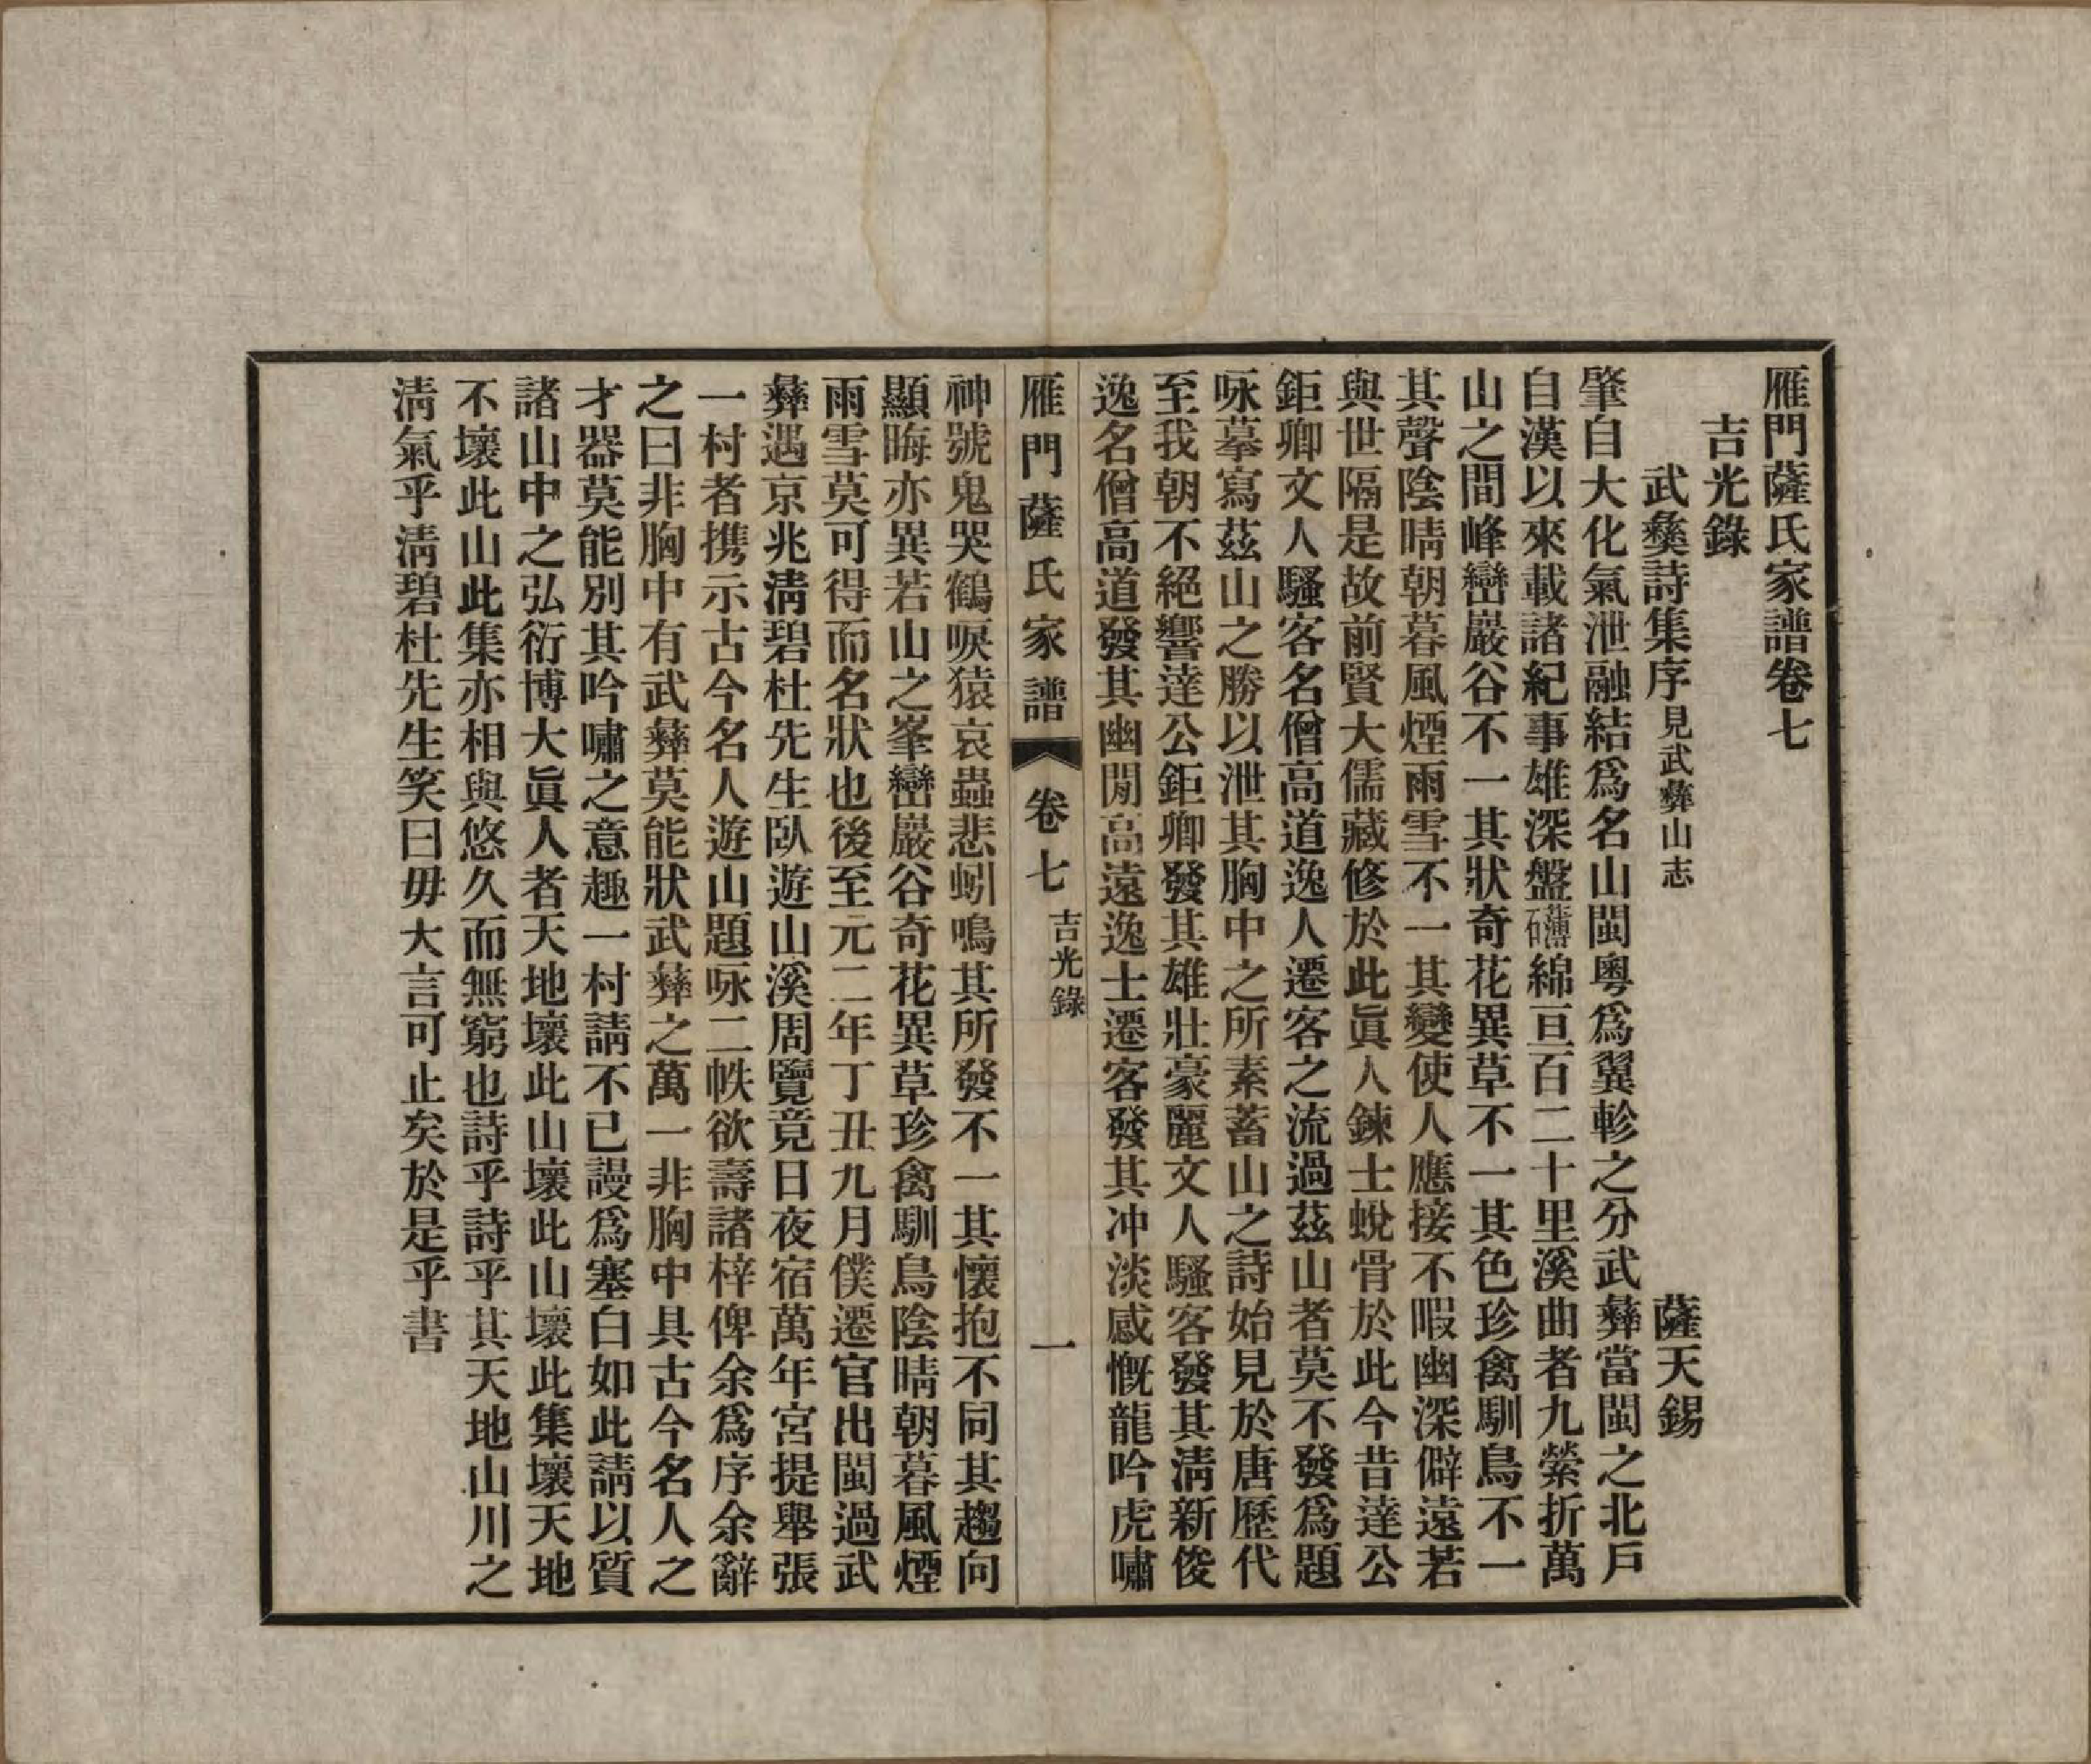 雁門薩氏家譜卷七
吉光錄
武彝詩集序見武彝山志 薩天錫
肇自大化氣泄融結爲名山閩粵爲翼軫之分武彝當閩之北戶
自漢以來載諸紀事雄深盤礴綿亘百二十里溪曲者九縈折萬
山之間峰巒巖谷不一其狀奇花異草不一其色珍禽馴鳥不一
其聲陰晴朝暮風煙雨雪不一其變使人應接不暇幽深僻遠若
與世隔是故前賢大儒藏修於此眞人鍊士蛻骨於此今昔達公
鉅卿文人騷客名僧高道逸人遷客之流過茲山者莫不發爲題
咏摹寫茲山之勝以泄其胸中之所素蓄山之詩始見於唐歷代
至我朝不絕響達公鉅卿發其雄壯豪麗文人騷客發其淸新俊
逸名僧高道發其幽閒高遠逸士遷客發其冲淡感慨龍吟虎嘯
雁門薩氏家譜 卷七 吉光錄 一
神號鬼哭鶴唳猿哀蟲悲蚓鳴其所發不一其懷抱不同其趨向
顯晦亦異若山之峯巒巖谷奇花異草珍禽馴鳥陰晴朝暮風煙
雨雪莫可得而名狀也後至元二年丁丑九月僕遷官出閩過武
彝遇京兆淸碧杜先生臥遊山溪周覽竟日夜宿萬年宮提舉張
一村者携示古今名人遊山題咏二帙欲壽諸梓俾余爲序余辭
之曰非胸中有武彝莫能狀武彝之萬一非胸中具古今名人之
才器莫能別其吟嘯之意趣一村請不已謾爲塞白如此請以質
諸山中之弘衍博大眞人者天地壞此山壞此山壞此集壞天地
不壞此山此集亦相與悠久而無窮也詩乎詩乎其天地山川之
淸氣乎淸碧杜先生笑曰毋大言可止矣於是乎書